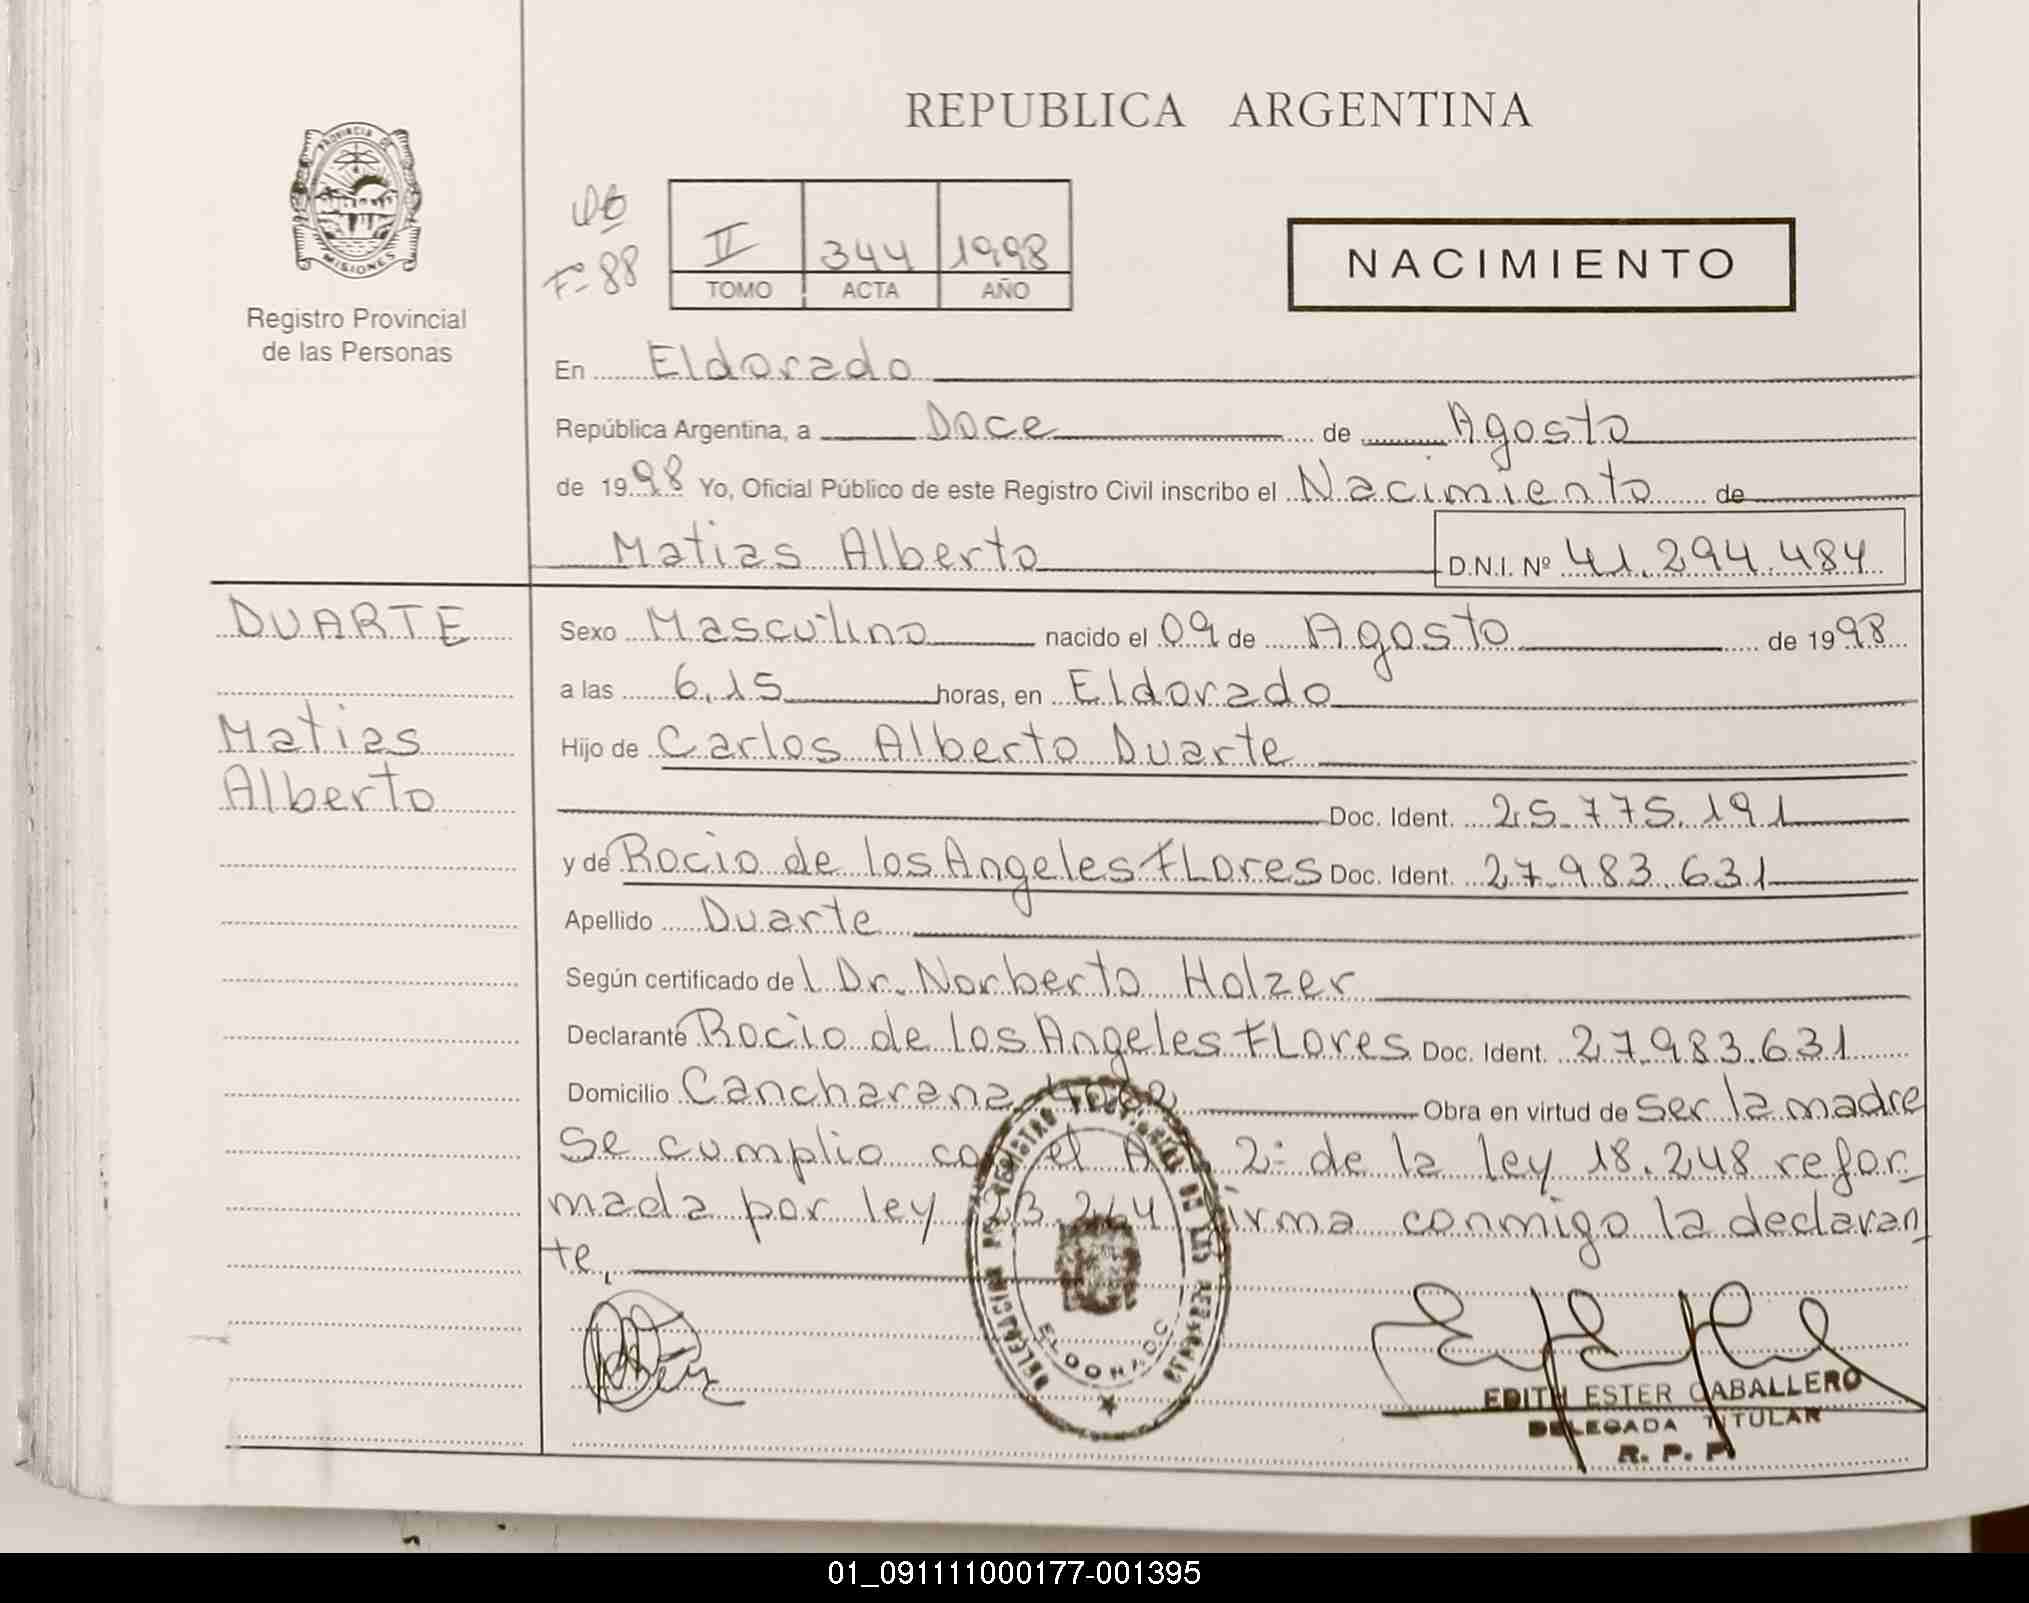 REPUBLICA ARGENTINA
PROVINCIA DE
MISIONES
Registro Provincial
de las Personas
F= 88
II 344 1998
TOMO ACTA AÑO
NACIMIENTO
En Eldorado
República Argentina, a Doce de Agosto
de 1998 Yo, Oficial Público de este Registro Civil inscribo el Nacimiento de
Matias Alberto D.N.I. Nº 41.294.484
DUARTE
Matias
Alberto
Sexo Masculino nacido el 09 de Agosto de 1998
a las 6,15 horas, en Eldorado
Hijo de Carlos Alberto Duarte
Doc. Ident. 25.775.191
y de Rocio de los Angeles FLores Doc. Ident. 27.983.631
Apellido Duarte
Según certificado de l Dr. Norberto Holzer
Declarante Rocio de los Angeles FLores Doc. Ident. 27.983.631
Domicilio Cancharana Obra en virtud de ser la madre
Se cumplio con el Art 2= de la ley 18.248 refor_
mada por ley 23.264 firma conmigo la declaran_
te,
DELEGACION REGISTRO PROVINCIAL DE LAS PERSONAS
ELDORADO
EDITH ESTER CABALLERO
DELEGADA TITULAR
R. P. P.
01_091111000177-001395